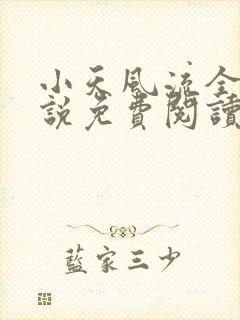 小天風流全
說免費閱讀
藍家三少